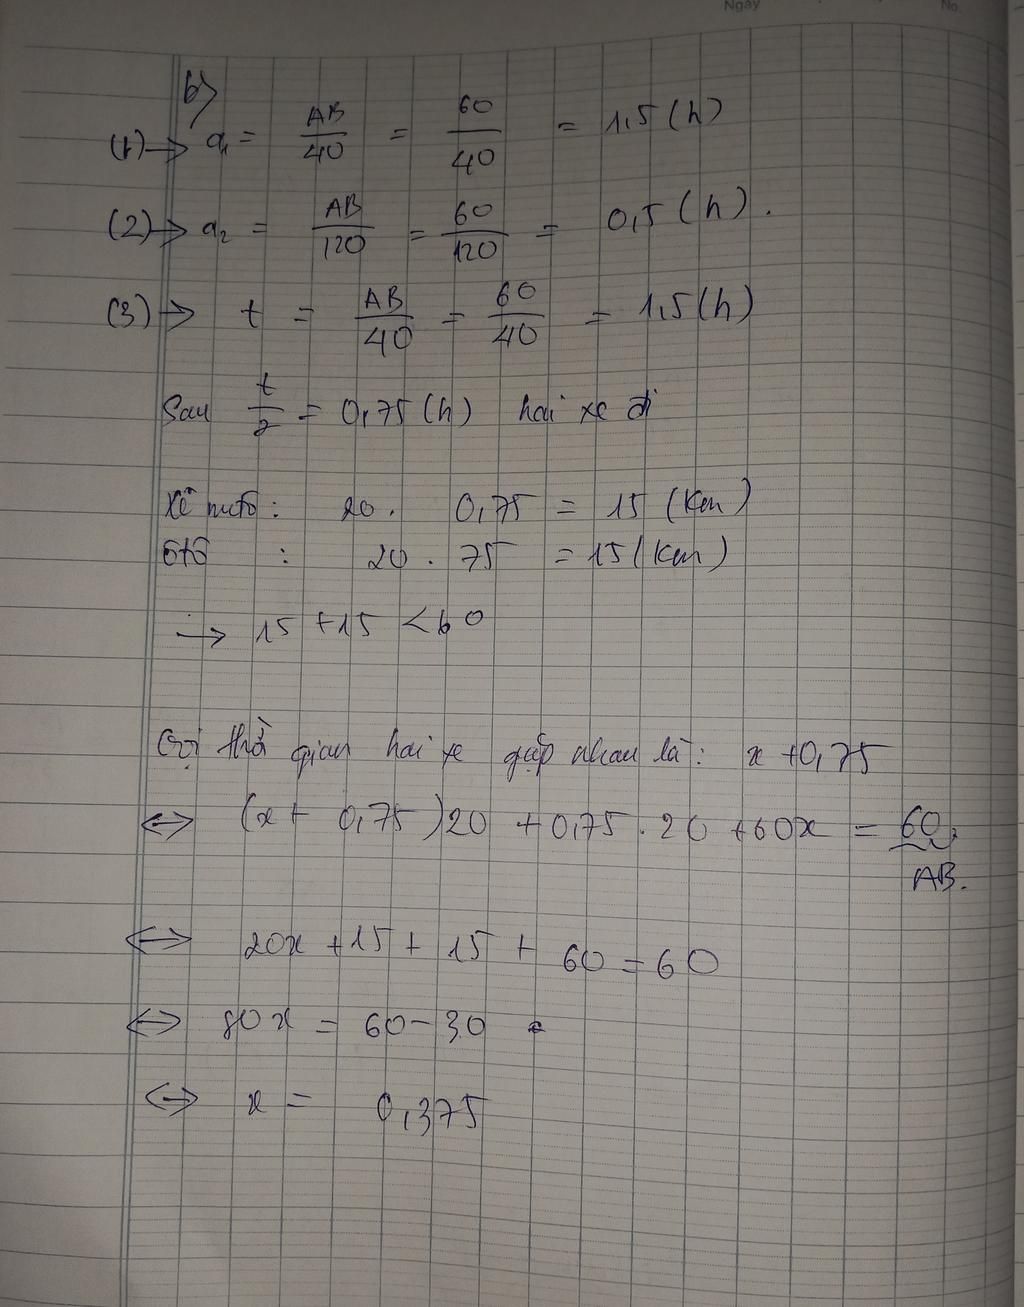 Ngày No.
b)
(1) → a₁ = AB/40 = 60/40 = 1,5 (h)
(2) → a₂ = AB/120 = 60/120 = 0,5 (h).
(3) → t = AB/40 = 60/40 = 1,5 (h)
Sau t/2 = 0,75 (h) hai xe đi
20 . 0,75 = 15 (Km)
ôtô : 20 . 75 = 15 (Km)
→ 15 + 15 < 60
Gọi thời gian hai xe gặp nhau là: x + 0,75
⇔ (x + 0,75)20 + 0,75 . 20 + 60x = 60
AB.
⇔ 20x + 15 + 15 + 60 = 60
⇔ 80x = 60 - 30
⇔ x = 0,375